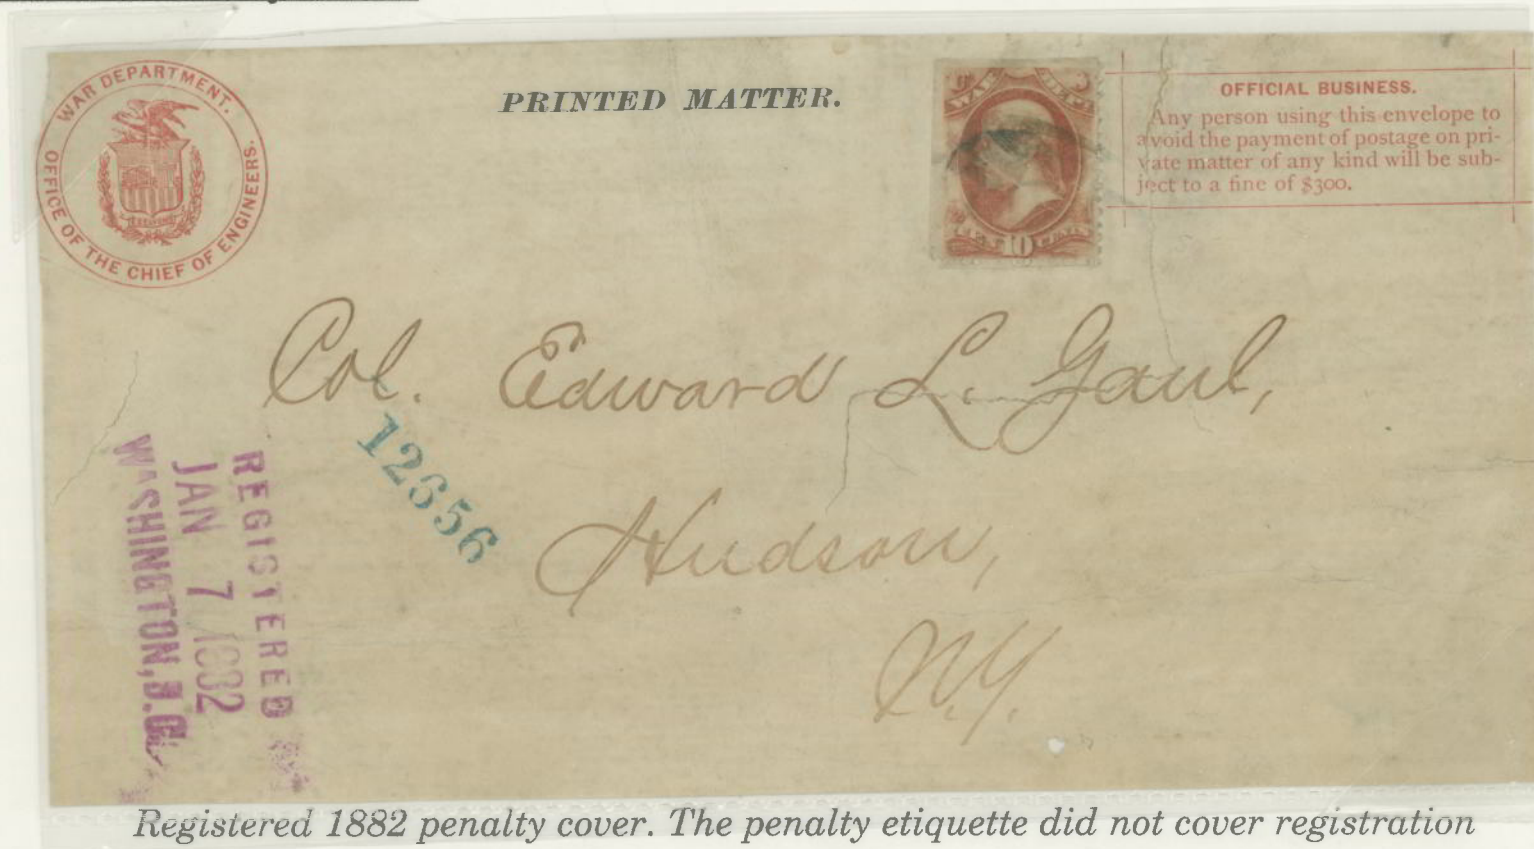 WAR DEPARTMENT.
OFFICE OF THE CHIEF OF ENGINEERS.
PRINTED MATTER.
WAR DEPT.
10
OFFICIAL BUSINESS.
Any person using this envelope to
avoid the payment of postage on pri-
vate matter of any kind will be sub-
ject to a fine of $300.
Col. Edward L. Gaul,
Hudson,
N.Y.
12656
REGISTERED
JAN 7 1882
WASHINGTON, D.C.
Registered 1882 penalty cover. The penalty etiquette did not cover registration